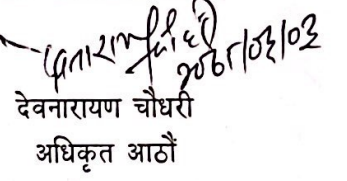 २०७८/०३/०३
देवनारायण चौधरी
अधिकृत आठौं